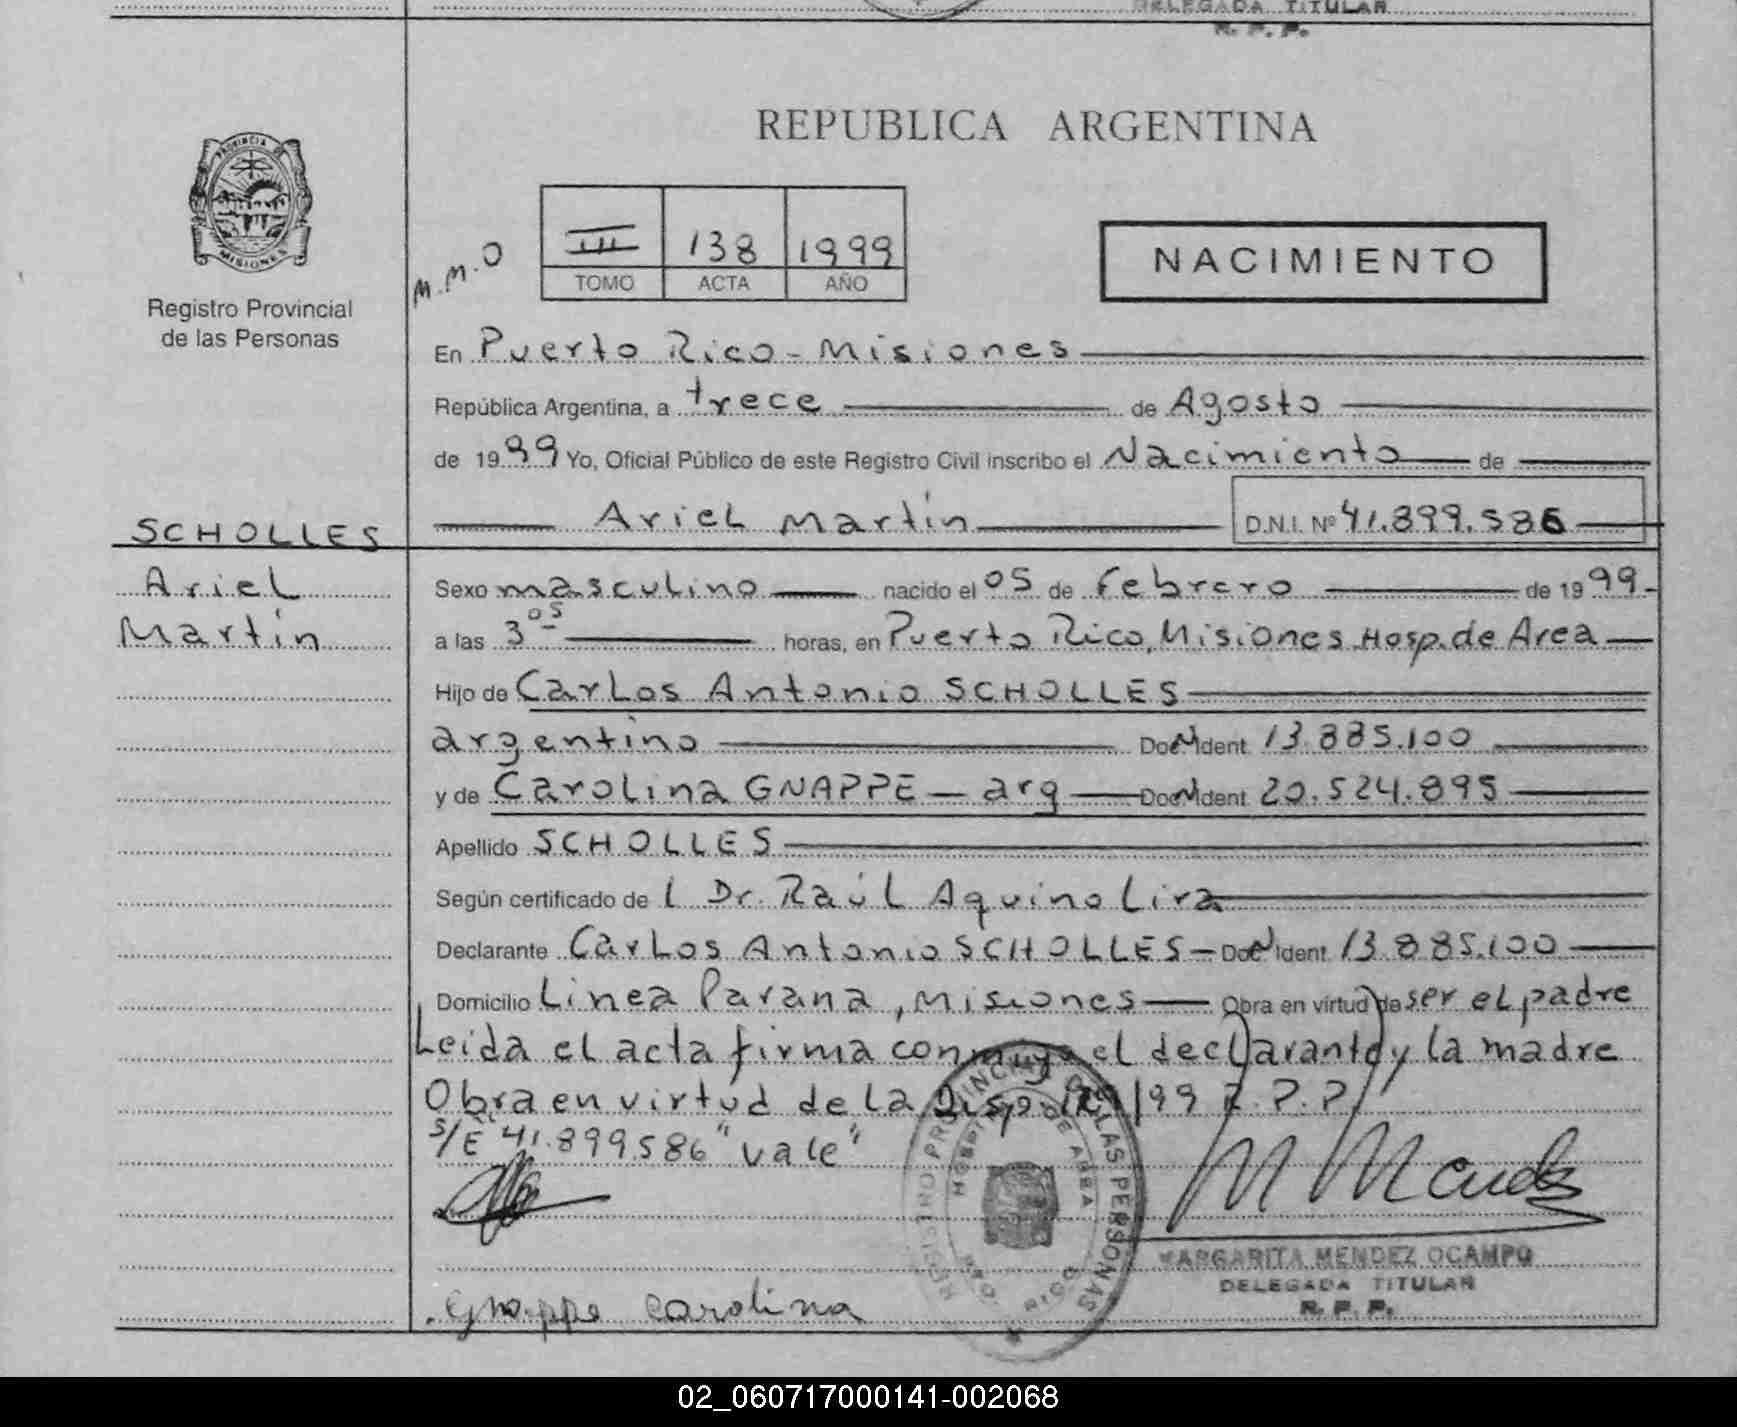 DELEGADA TITULAR
R. P. P.
REPUBLICA ARGENTINA
PROVINCIA DE
MISIONES
Registro Provincial
de las Personas
M.M.O
III 138 1999
TOMO ACTA AÑO
NACIMIENTO
En Puerto Rico - Misiones
República Argentina, a trece de Agosto
de 1999 Yo, Oficial Público de este Registro Civil inscribo el Nacimiento de
Ariel Martín D.N.I. Nº 41.899.586
SCHOLLES
Ariel
Martín
Sexo masculino nacido el 05 de Febrero de 1999-
a las 3 05 horas, en Puerto Rico, Misiones Hosp. de Area
Hijo de Carlos Antonio SCHOLLES
argentino Doc. Ident. 13.885.100
y de Carolina GNAPPE - arg - Doc. Ident. 20.524.895
Apellido SCHOLLES
Según certificado de l Dr. Raúl Aquino Lira
Declarante Carlos Antonio SCHOLLES - Doc. Ident. 13.885.100
Domicilio Linea Parana, Misiones Obra en virtud de ser el padre
Leida el acta firma conmigo el declarante y la madre
Obra en virtud de la Disp. /99 R.P.P.
S/E "41.899.586" vale"
REGISTRO PROVINCIAL DE LAS PERSONAS
HOSPITAL DE AREA
PTO. RICO
M Mendez
MARGARITA MENDEZ OCAMPO
DELEGADA TITULAR
R. P. P.
Gnappe Carolina
02_060717000141-002068